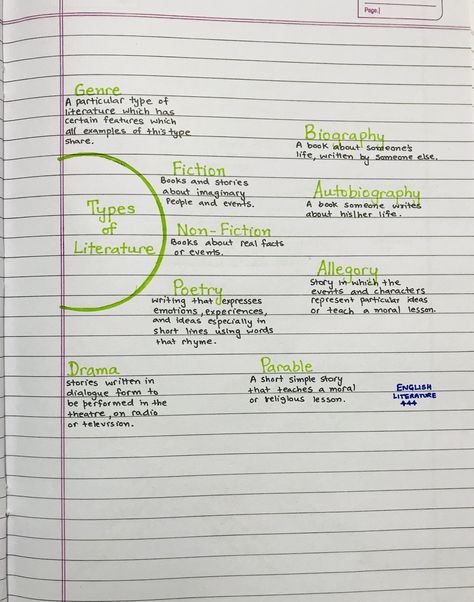 Page:
Genre
A particular type of
literature which has
certain features which
all examples of this type
share.
Biography
A book about someone's
life, written by someone else.
Fiction
Books and stories
about imaginary
People and events.
Autobiography
A book someone writes
about his/her life.
Types
of
Literature
Non-Fiction
Books about real facts
or events.
Allegory
Story in which the
events and characters
represent particular ideas
or teach a moral lesson.
Poetry
writing that expresses
emotions, experiences,
and ideas especially in
short lines using words
that rhyme.
Drama
stories written in
dialogue form to
be performed in the
theatre, on radio
or television.
Parable
A short simple story
that teaches a moral
or religious lesson.
ENGLISH
LITERATURE
444